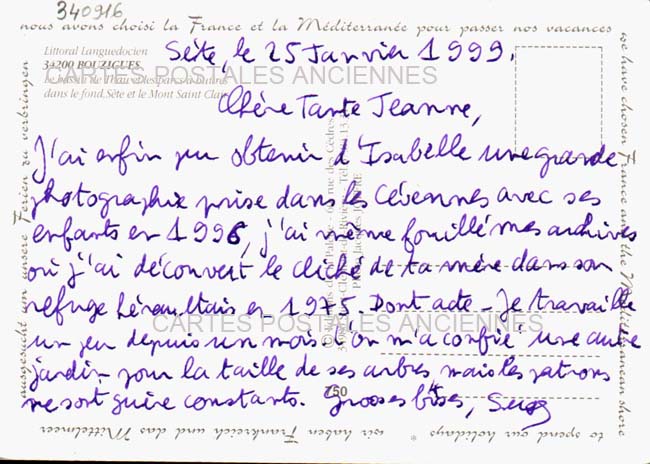 340916
nous avons choisi la France et la Méditerranée pour passer nos vacances
Littoral Languedocien
34200 BOUZIGUES
dans le fond, Sète et le Mont Saint Clair
CARTES POSTALES ANCIENNES
Sète, le 25 Janvier 1999.
Chère Tante Jeanne,
J'ai enfin pu obtenir d'Isabelle une grande
photographie prise dans les Cévennes avec ses
enfants en 1996, j'ai même fouillé mes archives
où j'ai découvert le cliché de ta mère dans son
refuge héraultais en 1975. Dont acte - Je travaille
un peu depuis un mois. L'on m'a confié une autre
jardin pour la taille de ses arbres mais les patrons
ne sont guère constants. Grosses bises, Serge
CARTES POSTALES ANCIENNES
750
we have chosen France and the Mediterranean shore
to spend our holidays *
wir haben Frankreich und das Mittelmeer
ausgesucht um unsere Ferien zu verbringen